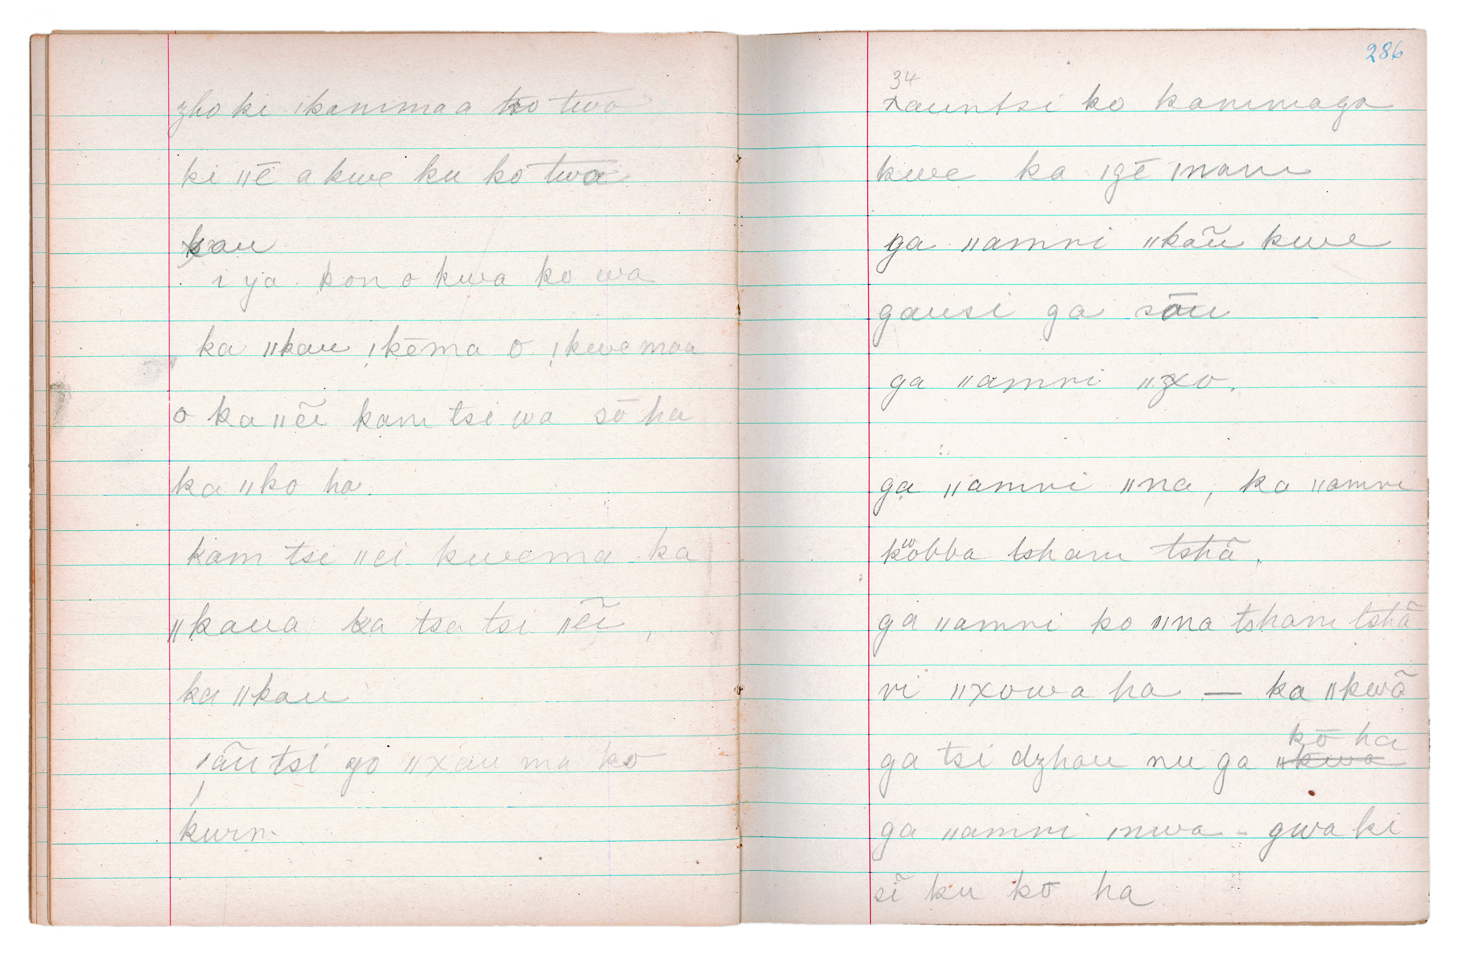 zho ki ǀkanimaa ko twa
ki ǁē a kwe ku ko twa
kau
i ya kon o kwa ko wa
ka ǁkau ǃkēma o ǃkwemaa
o ka ǁẽi kam tsi wa sō ha
ka ǁko ha.
kam tsi ǁei kwema ka
ǁkaua ka tsa tsi ǁẽi,
ka ǁkau
ǀãu tsi go ǁxau ma ko
kurn
286
34
xauntsi ko kanimaga
kwe ka ǀgē ǀnam
ga ǁamni ǁkaũ kwe
gausi ga sāu
ga ǁamni ǁgxo.
ga ǁamni ǁna, ka ǁamni
kwobba tsham tshã.
ga ǁamni ko ǁna tsham tshã
ri ǁxowa ha — ka ǁkwã
kō ha
ga tsi dzhau nu ga ǁkwa
ga ǁamni ǀnwa - gwa ki
sĩ ku kō ha